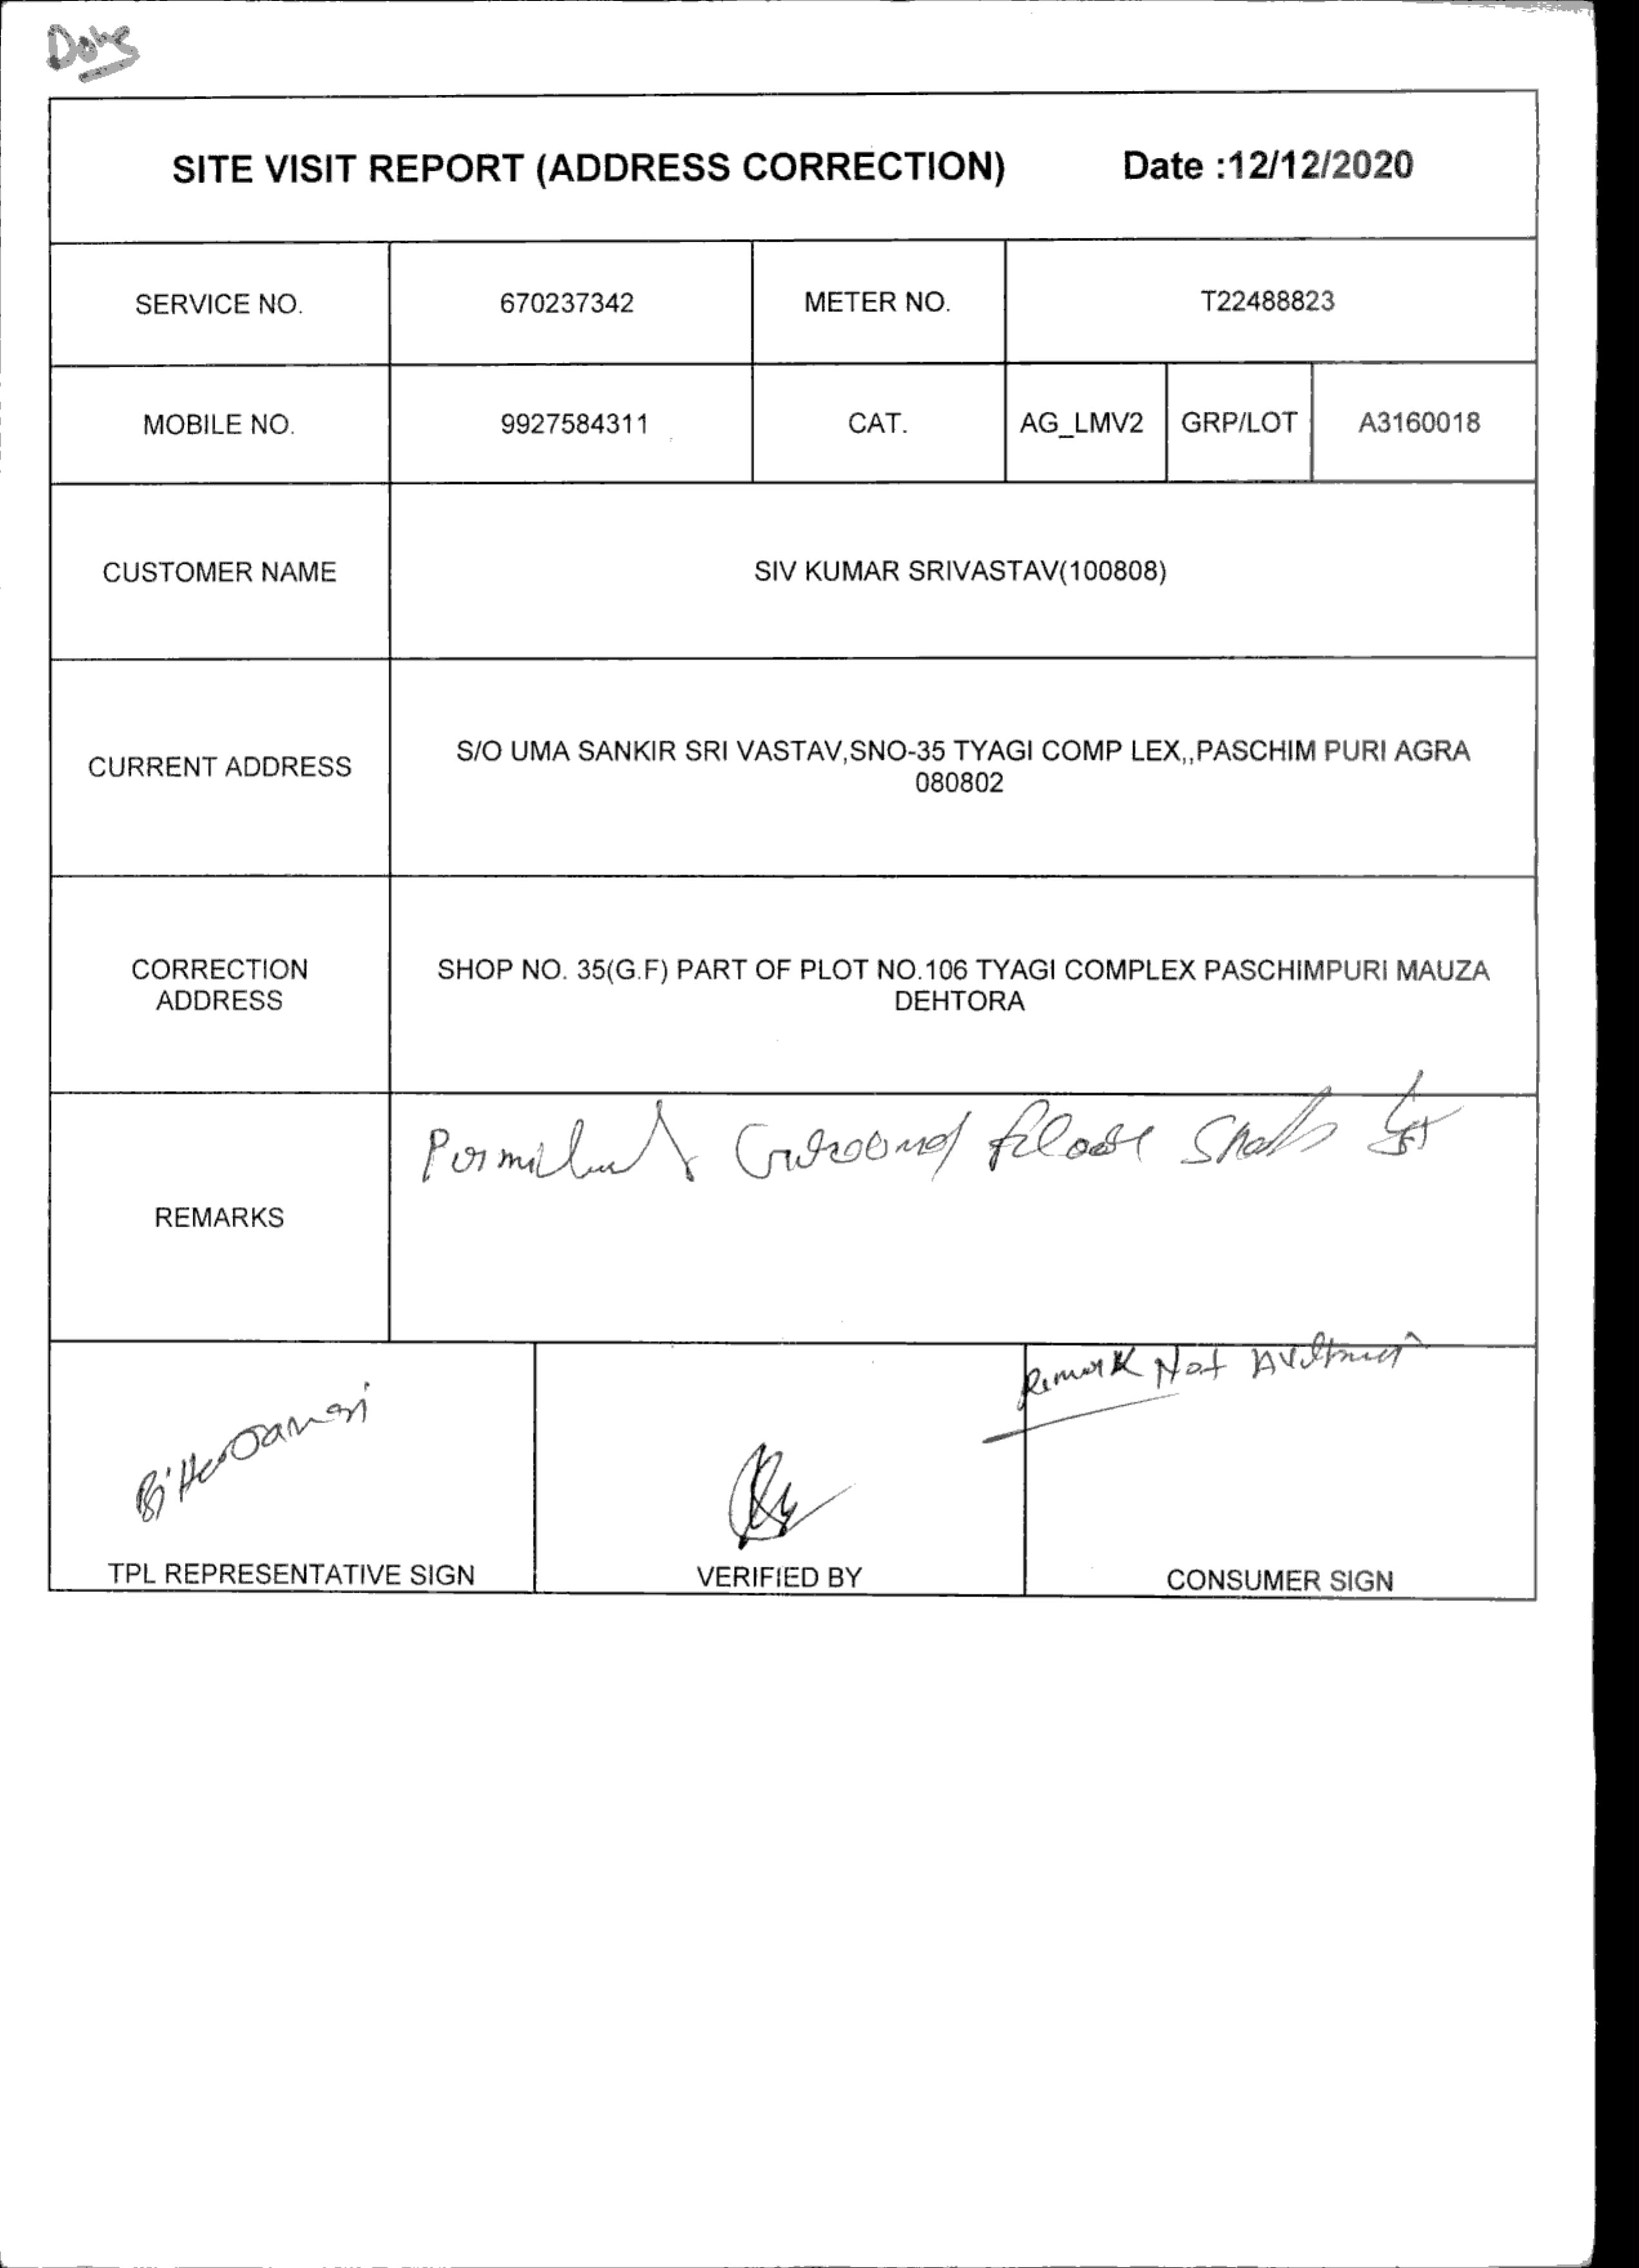 Done
SITE VISIT REPORT (ADDRESS CORRECTION) Date :12/12/2020
SERVICE NO. 670237342 METER NO. T22488823
MOBILE NO. 9927584311 CAT. AG_LMV2 GRP/LOT A3160018
CUSTOMER NAME SIV KUMAR SRIVASTAV(100808)
CURRENT ADDRESS S/O UMA SANKIR SRI VASTAV,SNO-35 TYAGI COMP LEX,,PASCHIM PURI AGRA
080802
CORRECTION
ADDRESS
SHOP NO. 35(G.F) PART OF PLOT NO.106 TYAGI COMPLEX PASCHIMPURI MAUZA
DEHTORA
REMARKS
Remark Not
TPL REPRESENTATIVE SIGN VERIFIED BY CONSUMER SIGN